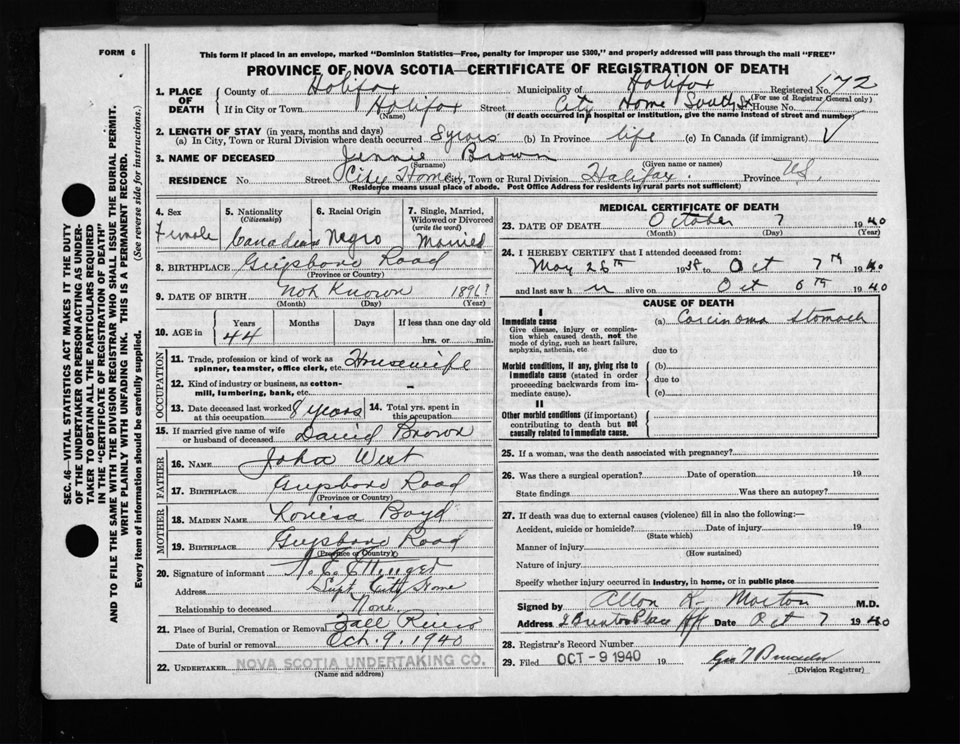 FORM 6
This form if placed in an envelope, marked "Dominion Statistics—Free, penalty for improper use $300," and properly addressed will pass through the mail "FREE"
PROVINCE OF NOVA SCOTIA—CERTIFICATE OF REGISTRATION OF DEATH
SEC. 46—VITAL STATISTICS ACT MAKES IT THE DUTY
OF THE UNDERTAKER OR PERSON ACTING AS UNDER-
TAKER TO OBTAIN ALL THE PARTICULARS REQUIRED
IN THE "CERTIFICATE OF REGISTRATION OF DEATH"
AND TO FILE THE SAME WITH THE DIVISION REGISTRAR WHO SHALL ISSUE THE BURIAL PERMIT.
WRITE PLAINLY WITH UNFADING INK. THIS IS A PERMANENT RECORD.
Every item of information should be carefully supplied. (See reverse side for instructions.)
1. PLACE OF DEATH
County of Halifax Municipality of Halifax Registered No. 172
(For use of Registrar General only)
If in City or Town Halifax Street City Home South St House No.
(Name) (If death occurred in a hospital or institution, give the name instead of street and number)
2. LENGTH OF STAY (in years, months and days)
(a) In City, Town or Rural Division where death occurred 8 years (b) In Province life (c) In Canada (if immigrant)
3. NAME OF DECEASED Jennie Brown
(Surname) (Given name or names)
RESIDENCE No. Street City Home City, Town or Rural Division Halifax. Province
(Residence means usual place of abode. Post Office Address for residents in rural parts not sufficient)
4. Sex
Female
5. Nationality
(Citizenship)
Canadian
6. Racial Origin
Negro
7. Single, Married, Widowed or Divorced
(write the word)
Married
8. BIRTHPLACE Guysboro Road
(Province or Country)
9. DATE OF BIRTH Not Known 1896?
(Month) (Day) (Year)
10. AGE in
Years Months Days If less than one day old
44 hrs. or min.
OCCUPATION
11. Trade, profession or kind of work as
spinner, teamster, office clerk, etc. Housewife
12. Kind of industry or business, as cotton-
mill, lumbering, bank, etc. —
13. Date deceased last worked at this occupation 8 years 14. Total yrs. spent in this occupation
15. If married give name of wife
or husband of deceased David Brown
FATHER
16. NAME John West
17. BIRTHPLACE Guysboro Road
(Province or Country)
MOTHER
18. MAIDEN NAME Louisa Boyd
19. BIRTHPLACE Guysboro Road
(Province or Country)
20. Signature of informant
Address Supt City Home
Relationship to deceased None.
21. Place of Burial, Cremation or Removal Fall River
Date of burial or removal Oct. 9. 1940
22. UNDERTAKER NOVA SCOTIA UNDERTAKING CO.
(Name and address)
MEDICAL CERTIFICATE OF DEATH
23. DATE OF DEATH October 7 1940
(Month) (Day) (Year)
24. I HEREBY CERTIFY that I attended deceased from:
May 26th 1938 to Oct 7th 1940
and last saw h alive on Oct 6th 1940
CAUSE OF DEATH
I
Immediate cause (a) Carcinoma Stomach
Give disease, injury or complica-
tion which caused death, not the
mode of dying, such as heart failure,
asphyxia, asthenia, etc. due to
Morbid conditions, if any, giving rise to
immediate cause (stated in order
proceeding backwards from im-
mediate cause).
(b)
due to
(c)
II
Other morbid conditions (if important)
contributing to death but not
causally related to immediate cause.
25. If a woman, was the death associated with pregnancy?
26. Was there a surgical operation? Date of operation 19
State findings Was there an autopsy?
27. If death was due to external causes (violence) fill in also the following:—
Accident, suicide or homicide? Date of injury 19
(State which)
Manner of injury
(How sustained)
Nature of injury
Specify whether injury occurred in industry, in home, or in public place
Signed by Alton K. Morton M.D.
Address Date Oct 7 1940
28. Registrar's Record Number
29. Filed OCT - 9 1940 19
(Division Registrar)